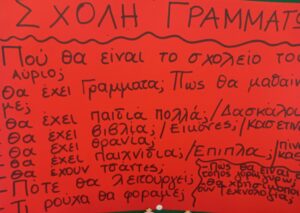 ΣΧΟΛΗ ΓΡΑΜΜΑΤ
Πού θα είναι το σχολείο του
αύριο;
Θα έχει Γράμματα; Πως θα μαθαίν
με;
-Θα έχει παιδιά πολλά;/Δασκάλου
-Θα έχει βιβλία;/Εικόνες;/κασετιν
-Θα έχει θρανία;
-Θα έχει παιχνίδια;/Επιπλα;
-Θα έχουν τσάντες;
-Πως θα είναι
-Ποτε θα λειτουργεί;
-Τι ρούχα θα φοραμε;